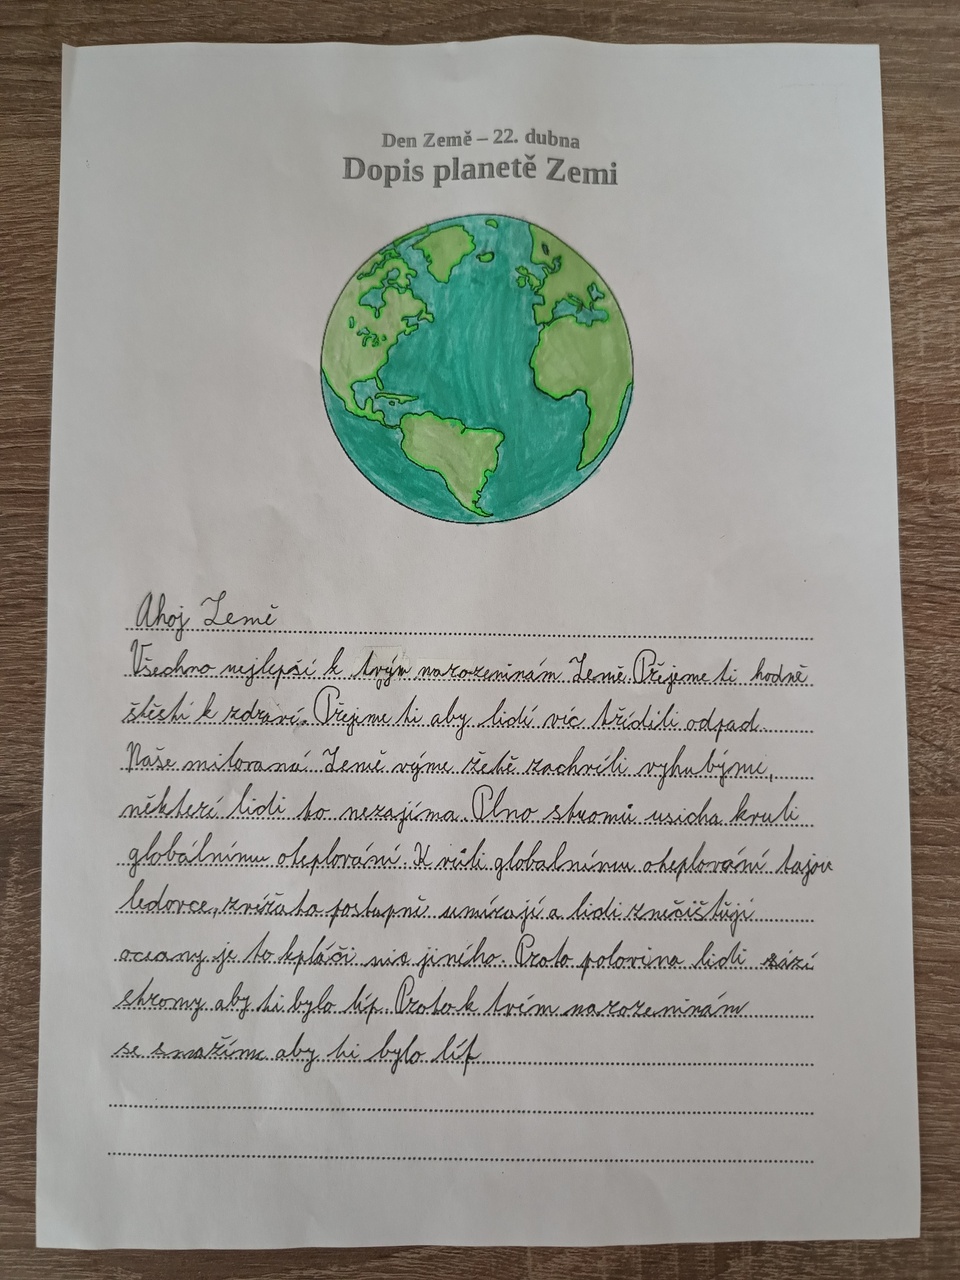 Den Země – 22. dubna
Dopis planetě Zemi
Ahoj Země
Všechno nejlepší k tvým narozeninám Země. Přejeme ti hodně
štěstí k zdraví. Přejme ti aby lidí víc třídili odpad.
Naše milovaná Země výme žetě zachvíli vyhubýme,
některí lidi to nezajíma. Plno stromů usicha kvuli
globálnímu oteplování. K vůli globalnímu oteplování tajou
ledovce, zvířata postupně umírají a lidi znečištují
oceany je to kpláči nic jiného. Proto polovina lidi sází
stromy aby ti bylo líp. Protok tvém narozeninám
se snažíme aby ti bylo líp